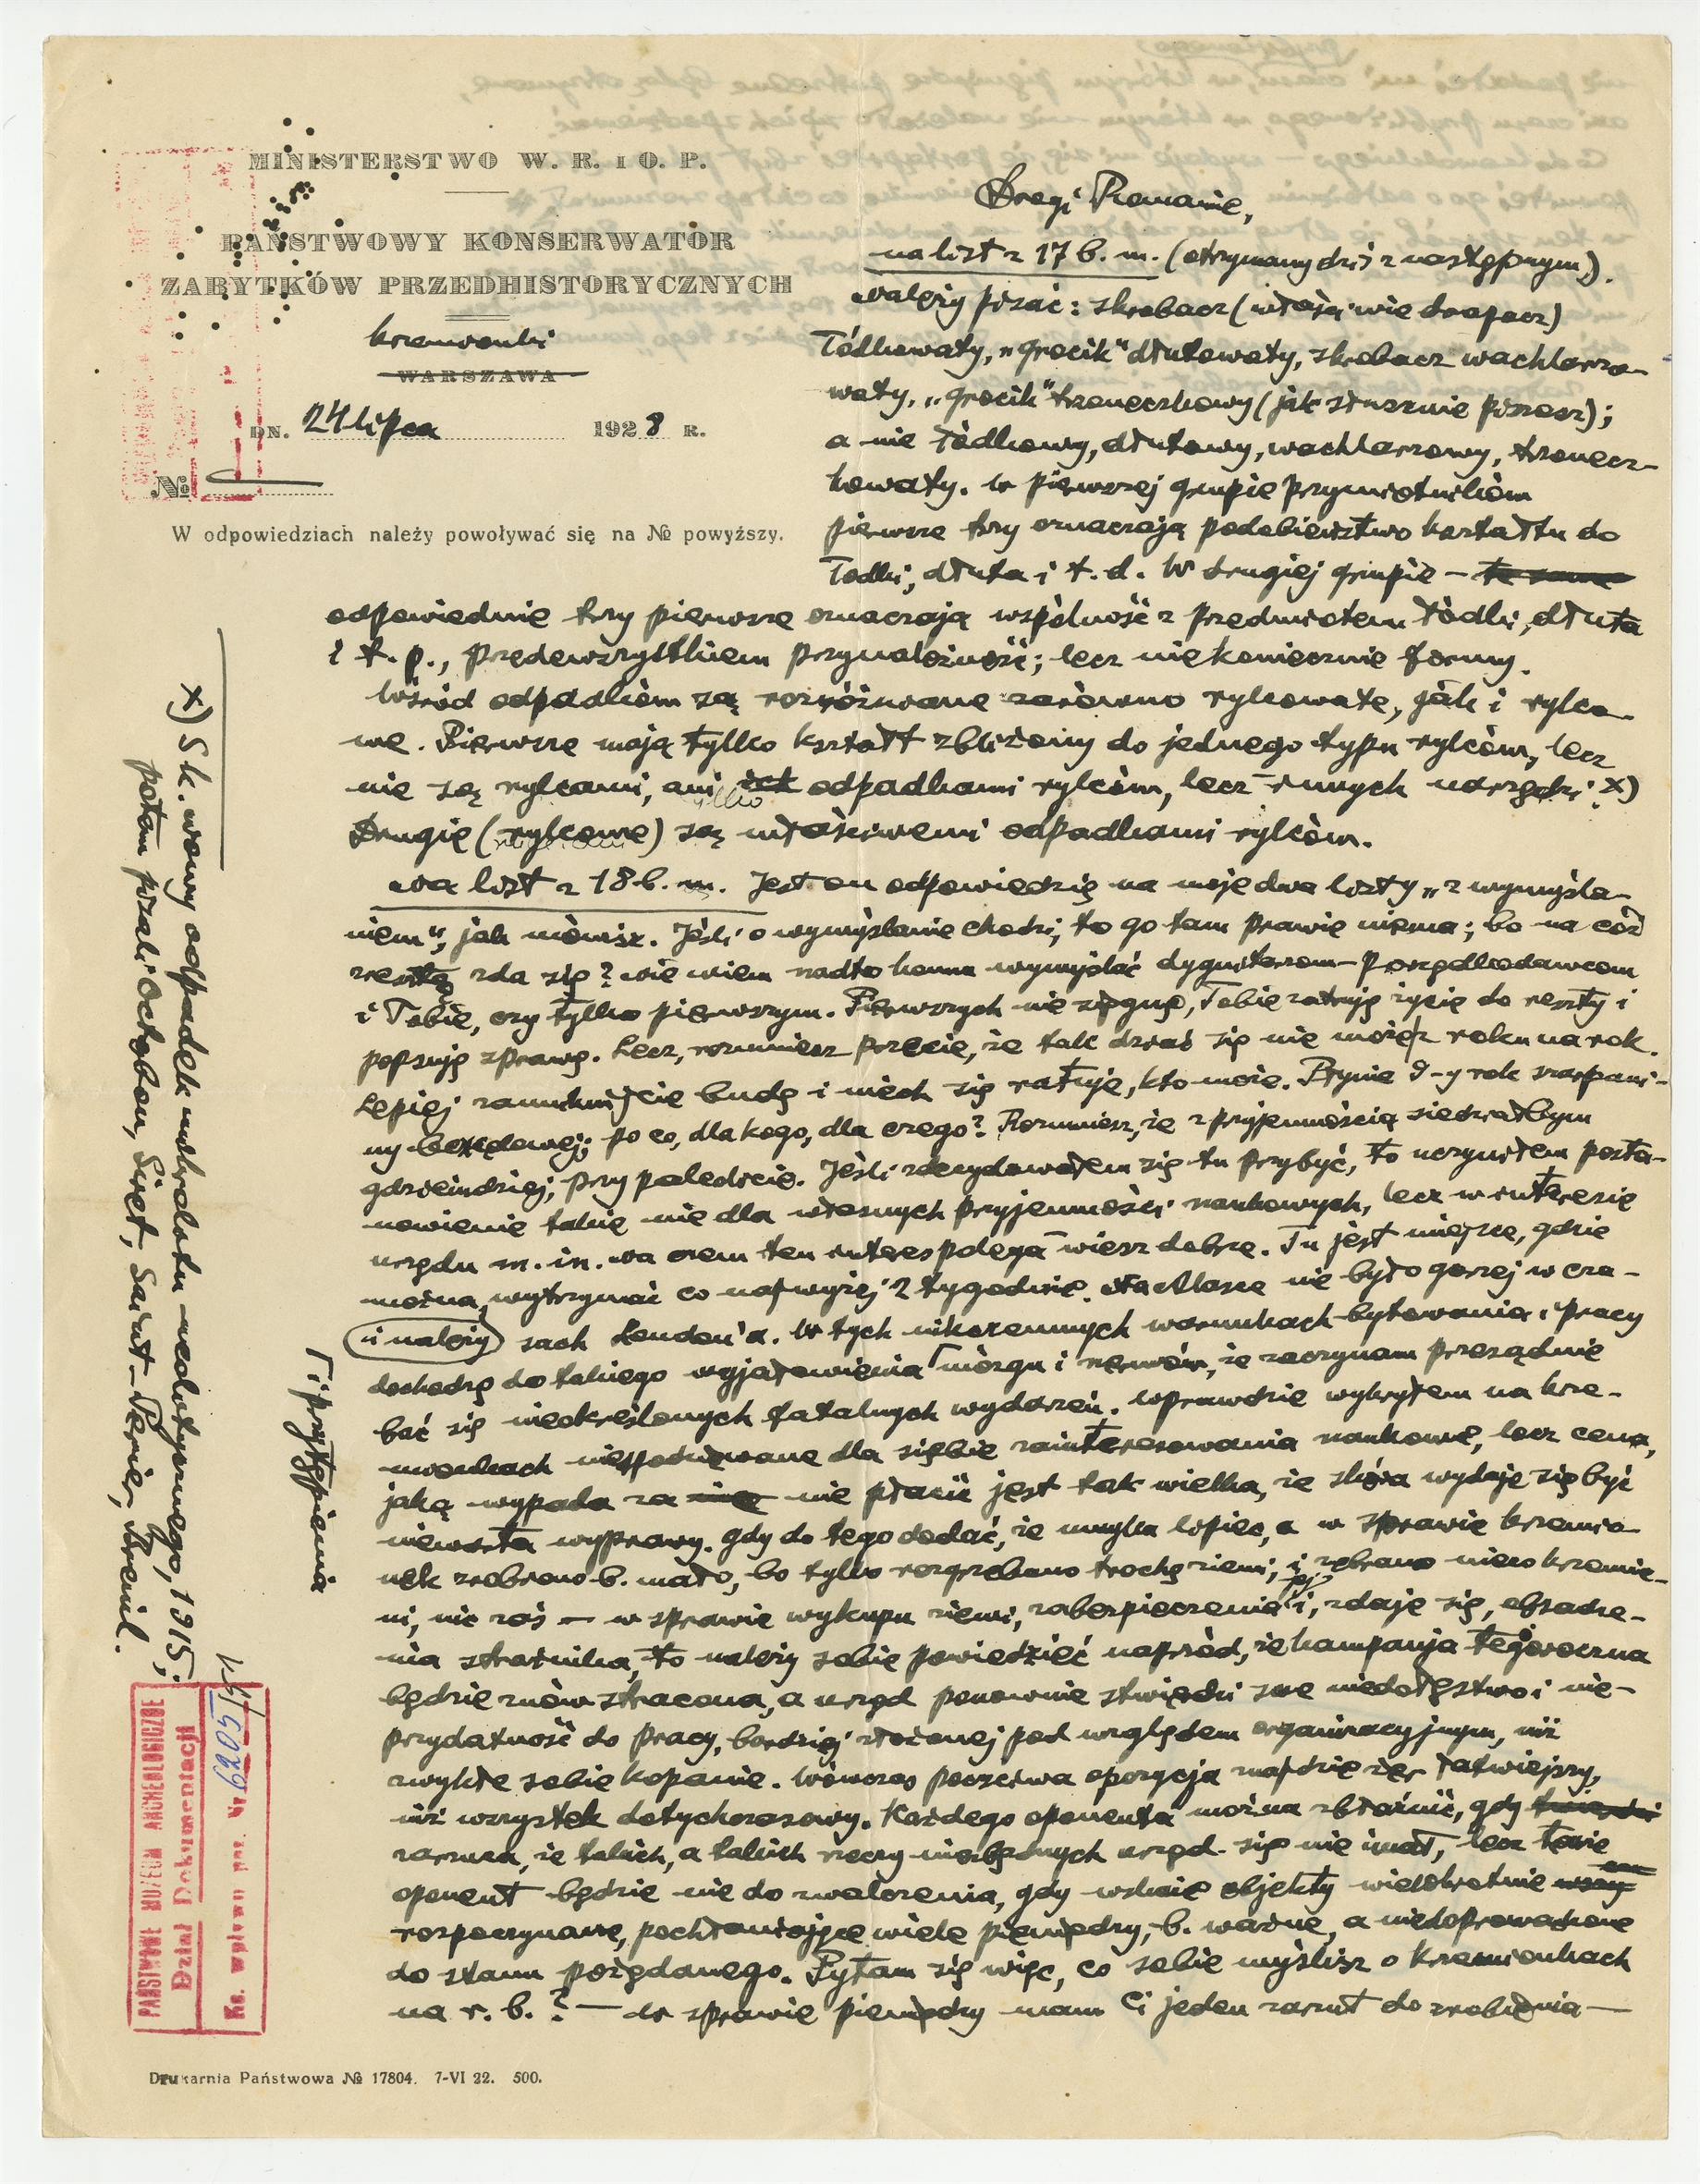 MINISTERSTWO W. R. i O. P.
PAŃSTWOWY KONSERWATOR
ZABYTKÓW PRZEDHISTORYCZNYCH
Krzemionki
WARSZAWA
DN. 24 lipca 1928 R.
№
W odpowiedziach należy powoływać się na № powyższy.
Drogi Romanie,
na list z 17 b. m. (otrzymany dziś z następnym).
należy pisać: skrobacz (właściwie drapacz)
łódkowaty, „grocik" dłutowaty, skrobacz wachlarzo-
waty, „grocik" trzoneczkowy (jak słusznie piszesz);
a nie łódkowy, dłutowy, wachlarzowy, trzonecz-
kowaty. W pierwszej grupie przymiotników
pierwsze trzy oznaczają podobieństwo kształtu do
łódki, dłuta i t. d. W drugiej grupie – te same
odpowiednie trzy pierwsze oznaczają wspólność z przedmiotem łódki, dłuta
i t. p., przedewszystkiem przynależność; lecz niekoniecznie formy.
Wśród odpadków są rozróżniane zarówno rylcowate, jak i rylco-
we. Pierwsze mają tylko kształt zbliżony do jednego typu rylców, lecz
nie są rylcami, ani ich odpadkami rylców, lecz innych narzędzi. x)
Drugie (rylcowe) są właściwemi odpadkami rylców.
na list z 18 b. m. Jest on odpowiedzią na moje dwa listy „z wymyśla-
niem", jak mówisz. Jeśli o wymyślanie chodzi, to go tam prawie niema; bo na cóż
zresztą zda się? nie wiem nadto komu wymyślać dygnitarzom-porządkodawcom
i Tobie, czy tylko pierwszym. Pierwszych nie sięgnę, Tobie zatruję życie do reszty i
popsuję sprawę. Lecz, rozumiesz przecie, że tak dziać się nie może z roku na rok.
Lepiej zamknijcie budę i niech się ratuje, kto może. Płynie 9-y rok szarpani-
ny bezładnej; po co, dla kogo, dla czego? Rozumiesz, że z przyjemnością siedziałbym
gdzieindziej, przy palecie. Jeśli zdecydowałem się tu przybyć, to uczyniłem posta-
nowienie takie nie dla własnych przyjemności naukowych, lecz w interesie
urzędu m. in. na czem ten interes polega – wiesz dobrze. Tu jest miejsce, gdzie
można wytrzymać co najwyżej 2 tygodnie. Na Alasce nie było gorzej w cza-
(i należy) sach London'a. W tych nikczemnych warunkach bytowania i pracy
dochodzę do takiego wyjałowienia ⌈mózgu i nerwów, że zaczynam przesądnie
bać się nieokreślonych fatalnych wydarzeń. Wprawdzie wykryłem na Krze-
mionkach niespodziewane dla siebie zainteresowania naukowe, lecz cena,
jaką wypada za nie płacić jest tak wielka, że skóra wydaje się być
niewarta wyprawy. Gdy do tego dodać, że umyka lipiec, a w sprawie Krzemio-
nek zrobiono b. mało, bo tylko rozgrzebano trochę ziemi, i zebrano nieco krzemie-
ni, nic zaś – w sprawie wykupu ziemi, zabezpieczenia jej i, zdaje się, obsadze-
nia strażnika, to należy sobie powiedzieć naprzód, że kampanja tegoroczna
będzie znów stracona, a urząd ponownie stwierdzi swe niedołęstwo i nie-
przydatność do pracy, bardziej złożonej pod względem organizacyjnym, niż
zwykłe sobie kopanie. Wówczas poczciwa opozycja znajdzie żer łatwiejszy,
niż wszystek dotychczasowy. Każdego oponenta można zbłaźnić, gdy
zarzuca, że takich, a takich rzeczy niezbędnych urząd się nie imał, lecz łowie
oponent będzie nie do zwalczenia, gdy wskaże objekty wielokrotnie
rozpoczynane, pochłaniające wiele pieniędzy, b. ważne, a niedoprowadzone
do stanu pożądanego. Pytam się więc, co sobie myślisz o Krzemionkach
na r. b.? — W sprawie pieniędzy mam Ci jeden zarzut do zrobienia —
⌈ i przytępienia
x) Sk. nowy odpadek mikrolitu neolitycznego, 1915;
potem pisali Octobon, Siret, Saint-Périer, Breuil.
PAŃSTWOWE MUZEUM ARCHEOLOGICZNE
Dział Dokumentacji
Ks. wpływu poz. Nr 6205/
Drukarnia Państwowa № 17804. 7-VI 22. 500.